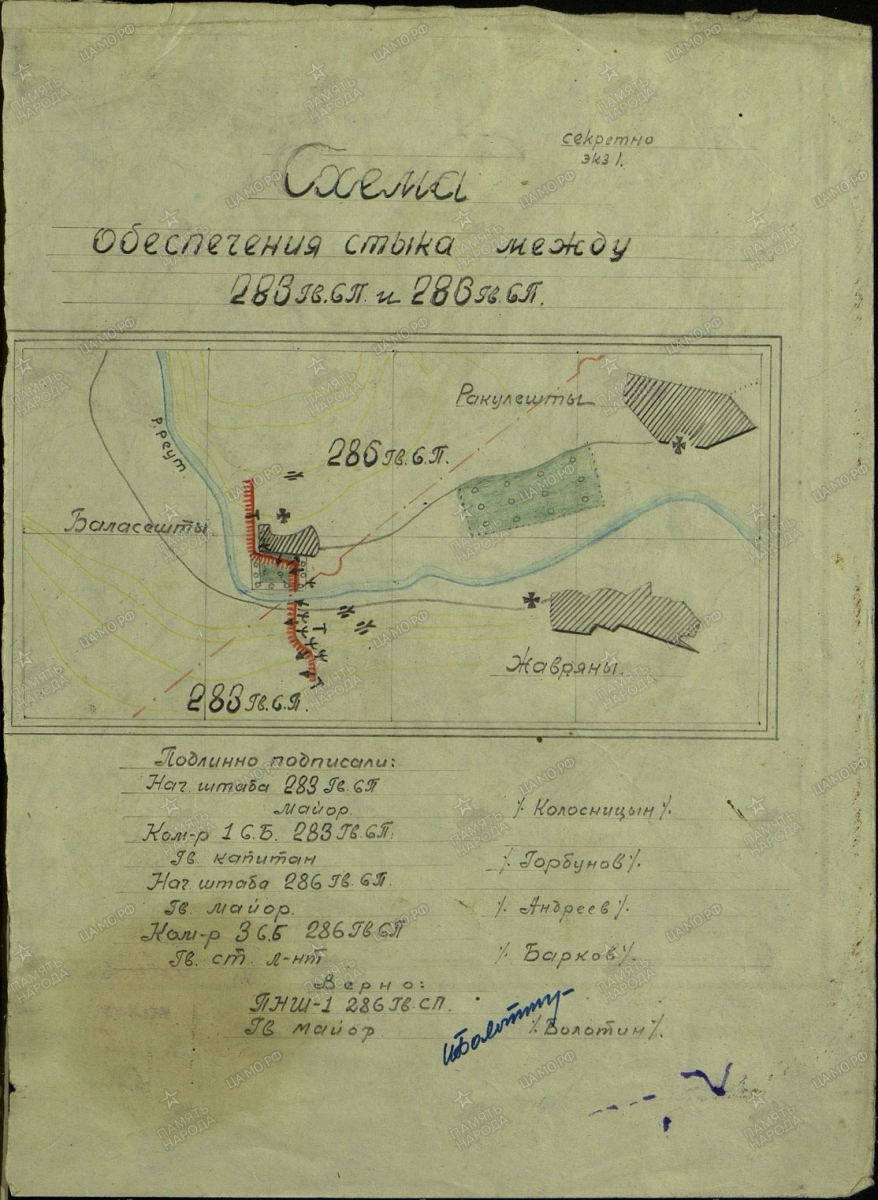 секретно
экз 1.
Схема
Обеспечения стыка между
283 Гв.СП. и 286 Гв.СП.
Ракулешты
р. Реут
286 Гв.СП.
Баласешты
Жавряны.
283 Гв.СП.
Подлинно подписали:
Нач. штаба 283 Гв СП
майор. /. Колосницын /.
Ком-р 1 С.Б. 283 Гв.СП.
Гв. капитан /. Горбунов /.
Нач. штаба 286 Гв.СП.
Гв. майор. /. Андреев /.
Ком-р 3 С.Б 286 Гв СП
Гв. ст. л-нт /. Барков /.
Верно:
ПНШ-1 286 Гв.СП.
Гв майор /. Болотин /.
ПАМЯТЬ НАРОДА
ЦАМО.РФ